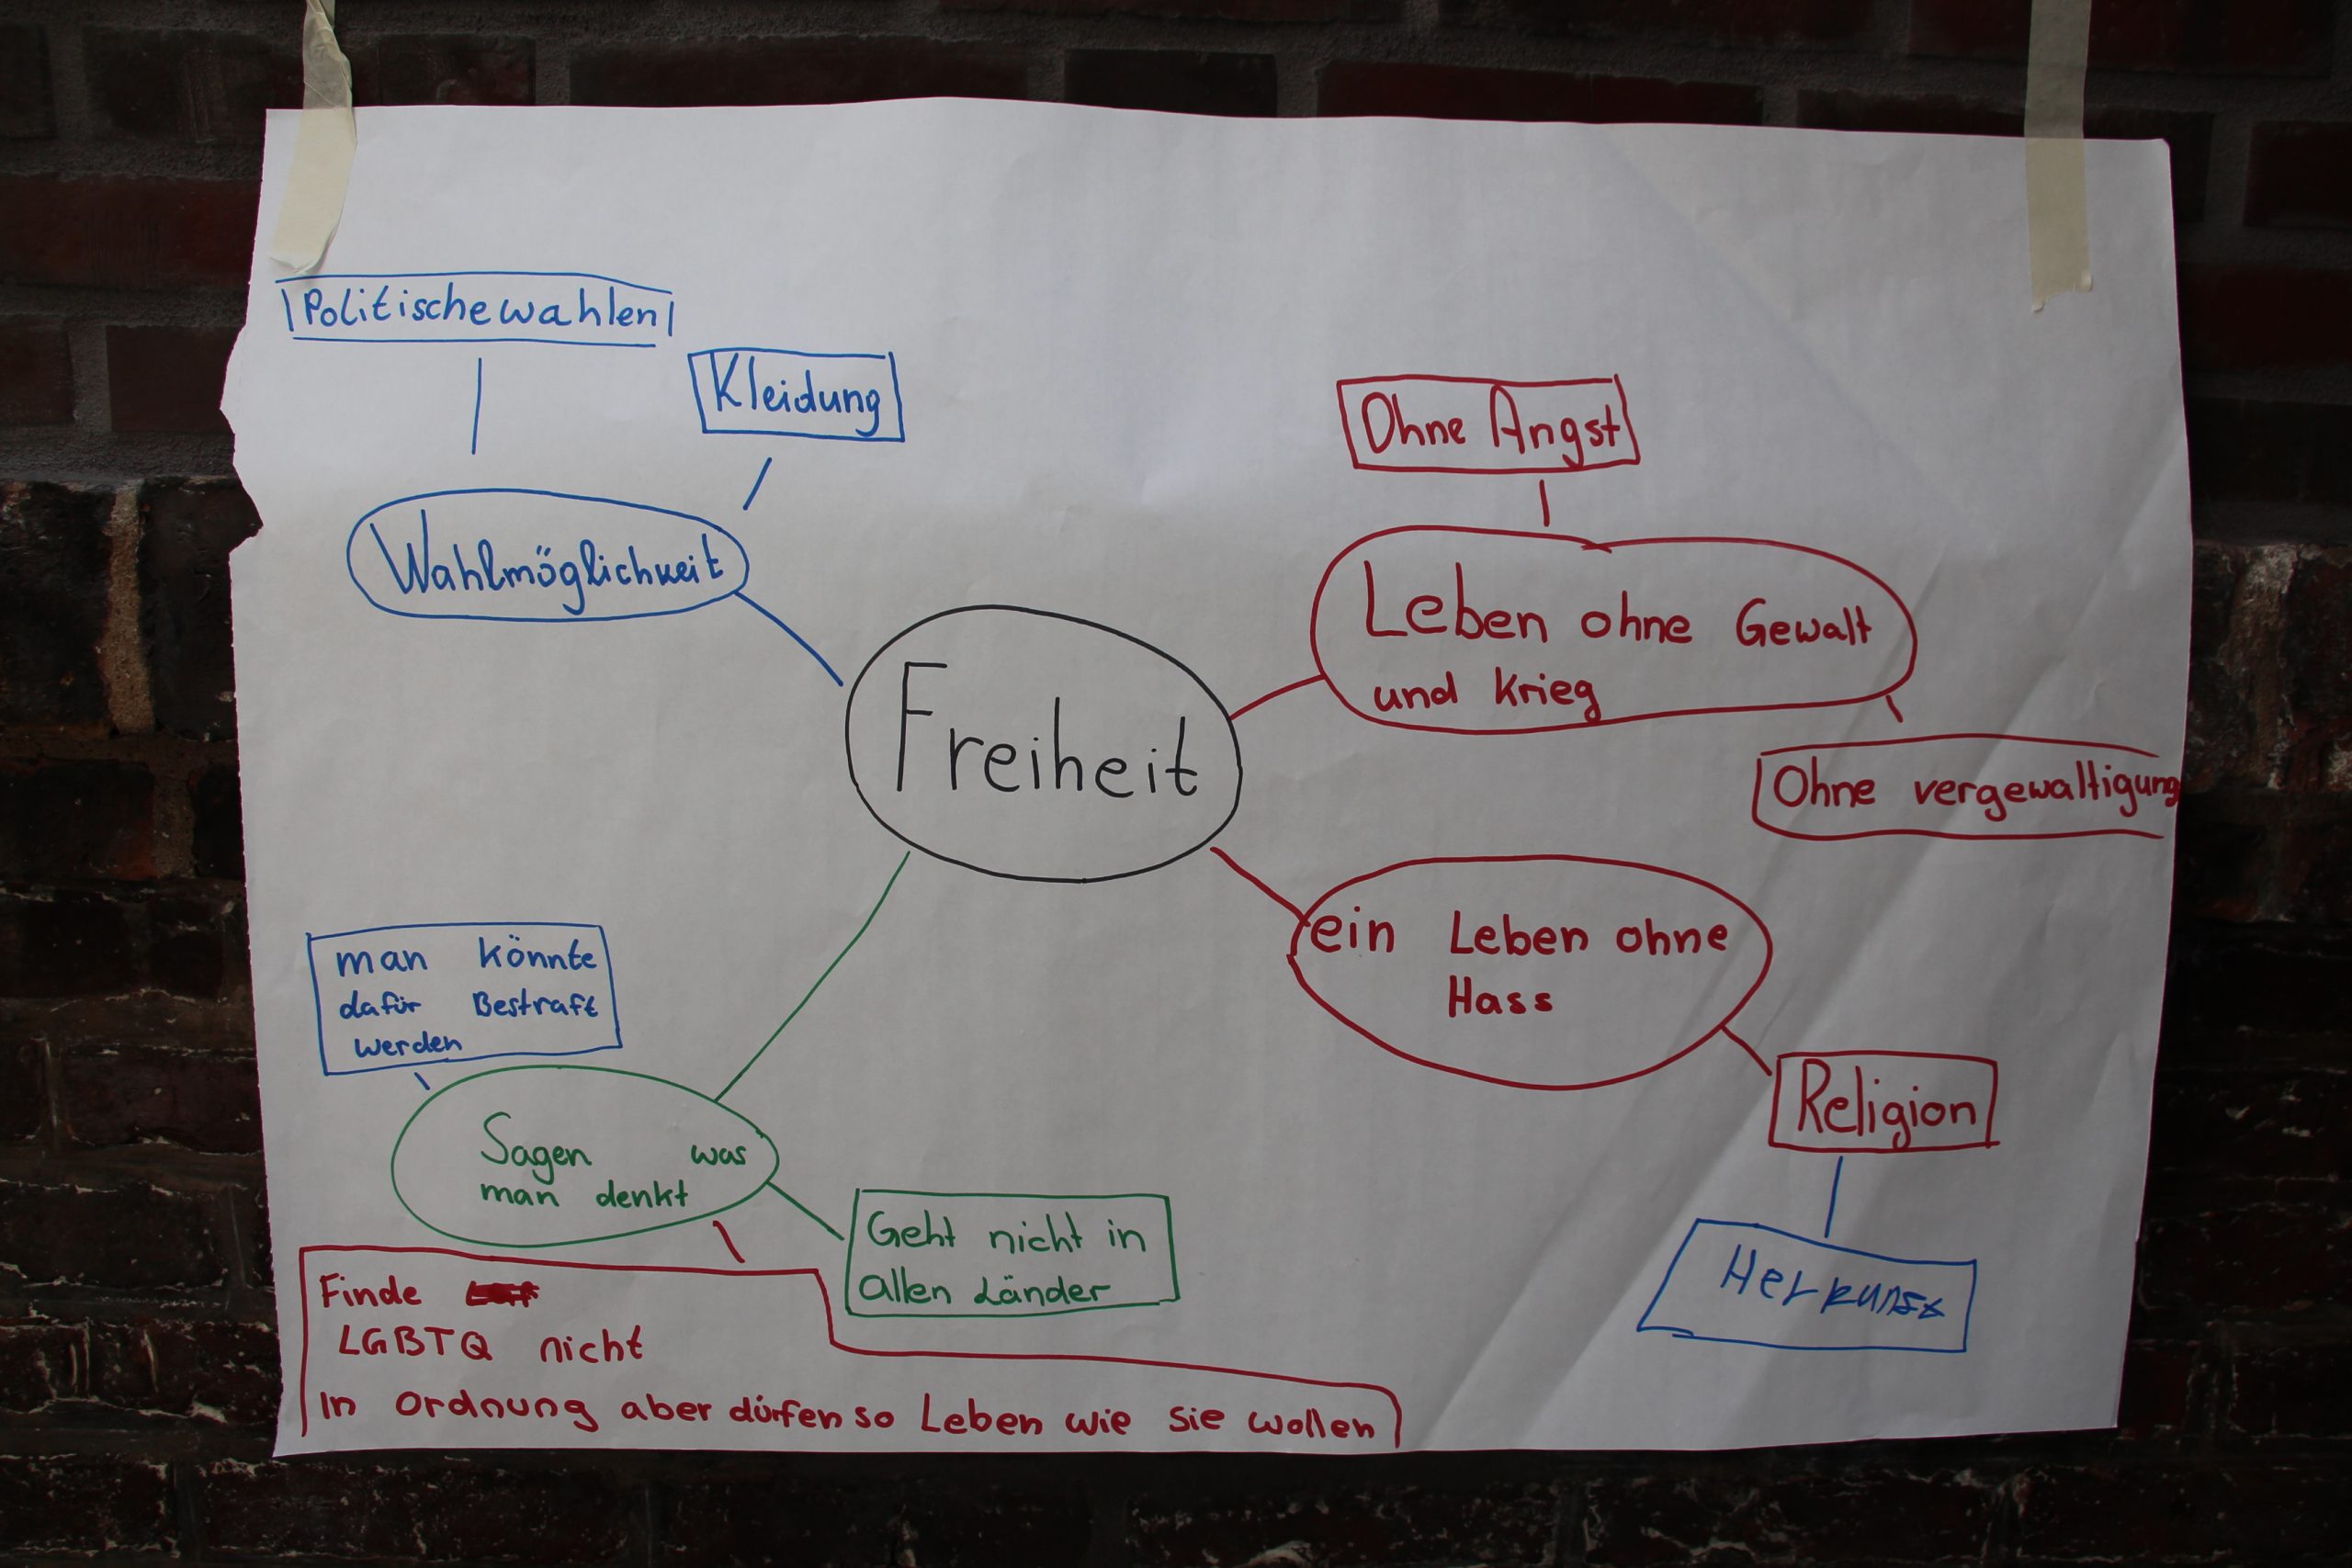 Politische wahlen
Kleidung
Wahlmöglichkeit
Ohne Angst
Leben ohne Gewalt
und Krieg
Ohne vergewaltigung
Freiheit
ein Leben ohne
Hass
Religion
Herkunft
man könnte
dafür Bestraft
werden
Sagen was
man denkt
Geht nicht in
allen Länder
Finde
LGBTQ nicht
In Ordnung aber dürfen so Leben wie sie wollen